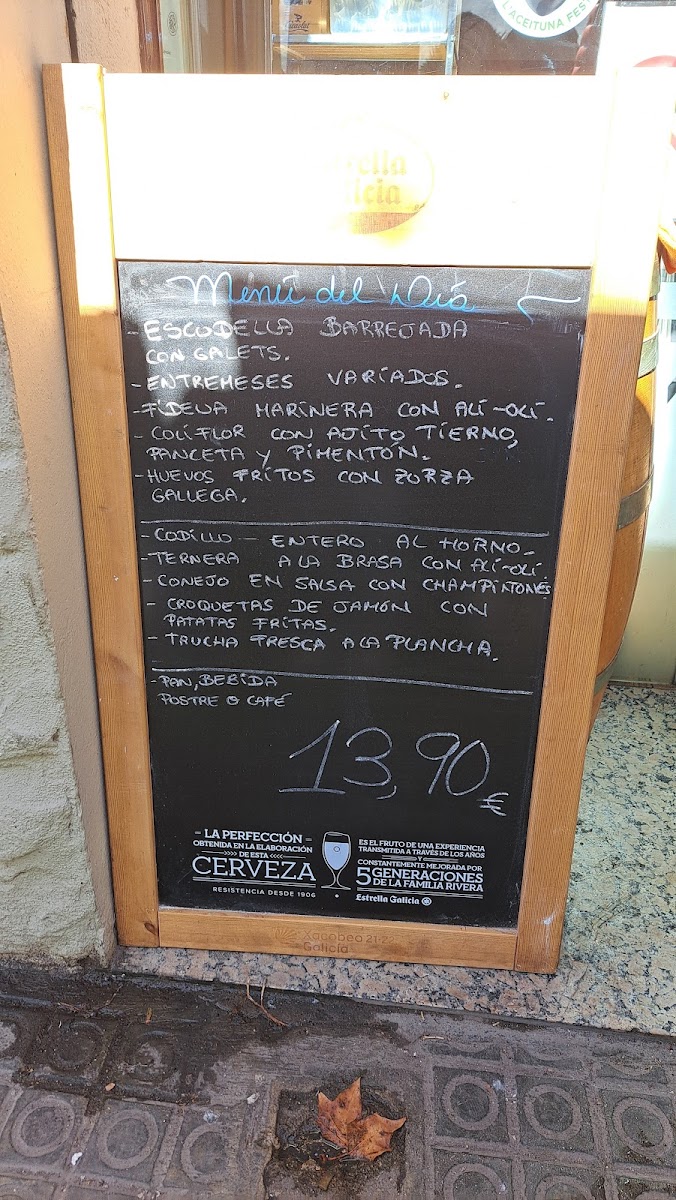 L'ACEITUNA FES
Estrella
Galicia
Menú del Diá
- ESCUDELLA BARREJADA
CON GALETS.
- ENTREMESES VARIADOS.
- FIDEUA MARINERA CON ALI-OLI.
- COLIFLOR CON AJITO TIERNO,
PANCETA y PIMENTÓN.
- HUEVOS FRITOS CON ZORZA
GALLEGA.
- CODILLO - ENTERO AL HORNO.
- TERNERA A LA BRASA CON ALI-OLI
- CONEJO EN SALSA CON CHAMPIÑONES
- CROQUETAS DE JAMÓN CON
PATATAS FRITAS.
- TRUCHA FRESCA A LA PLANCHA.
- PAN, BEBIDA
POSTRE O CAFÉ
13,90 €
- LA PERFECCIÓN -
OBTENIDA EN LA ELABORACIÓN
>>>> DE ESTA <<<<
CERVEZA
RESISTENCIA DESDE 1906
ES EL FRUTO DE UNA EXPERIENCIA
TRANSMITIDA A TRAVÉS DE LOS AÑOS
Y
CONSTANTEMENTE MEJORADA POR
5 GENERACIONES
DE LA FAMILIA RIVERA
Estrella Galicia
Xacobeo 21·22
Galicia